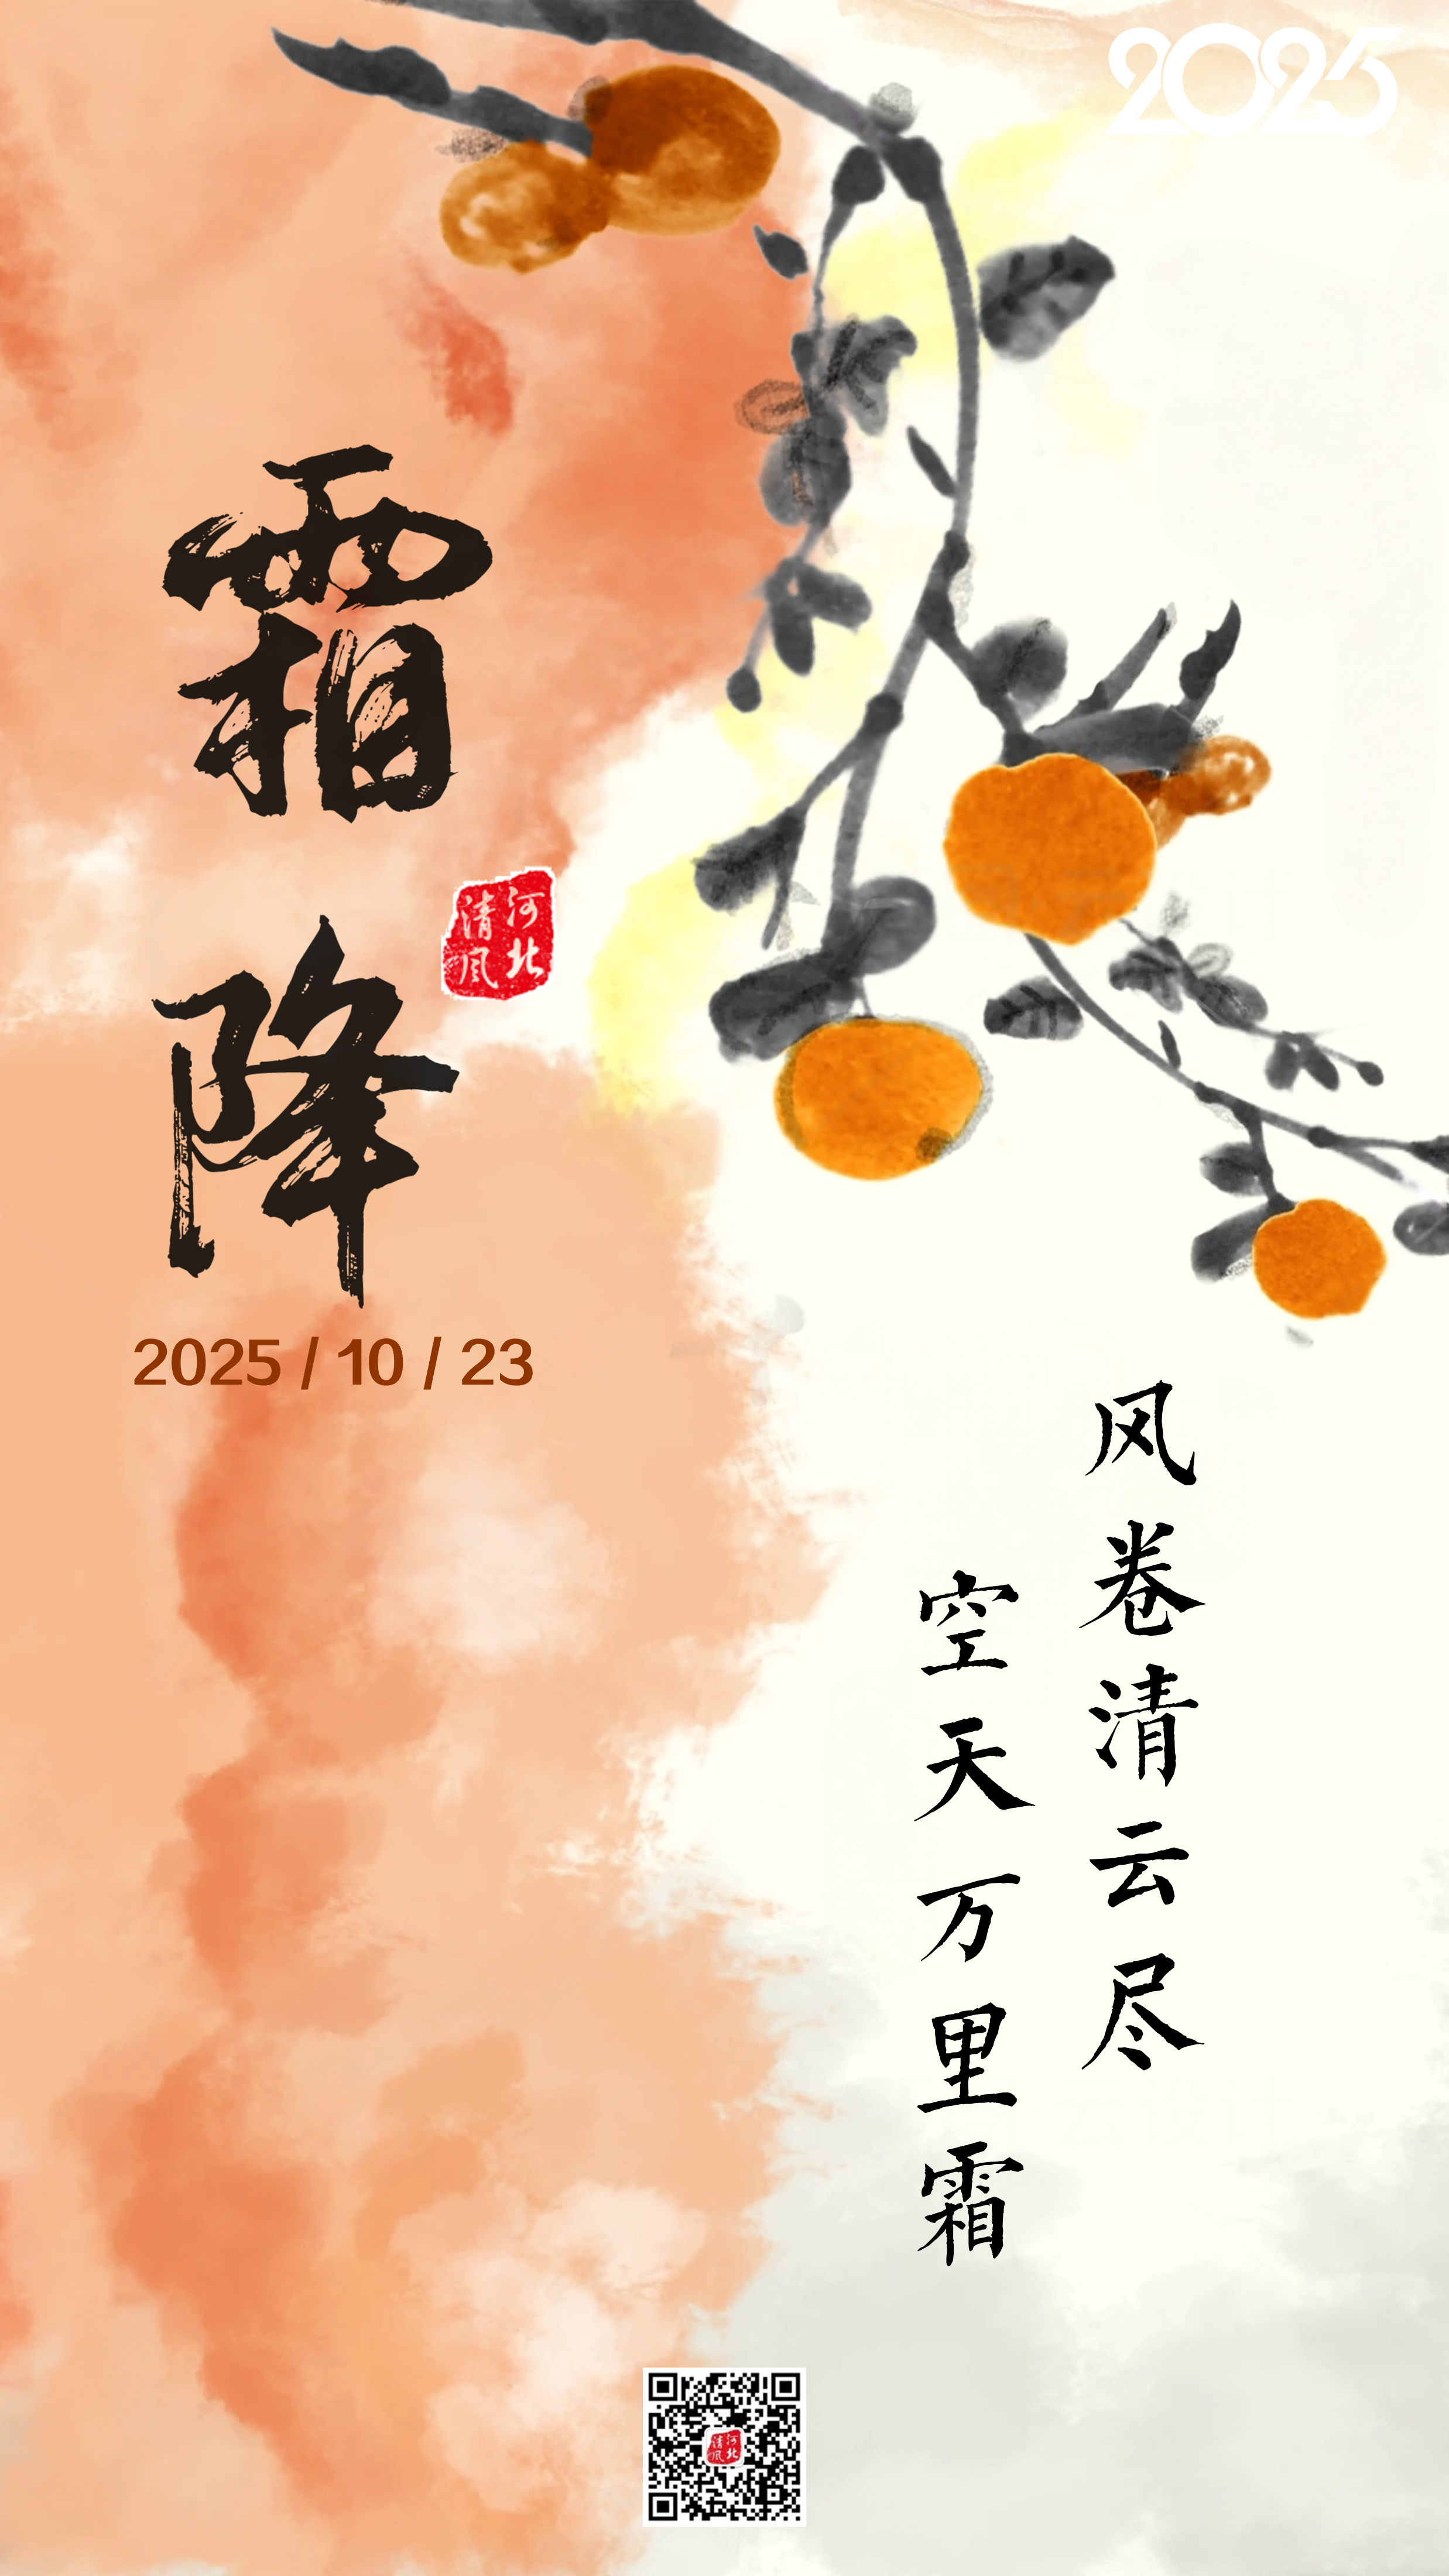 2025
霜降
河北
清风
2025 / 10 / 23
风卷清云尽
空天万里霜
河北
清风